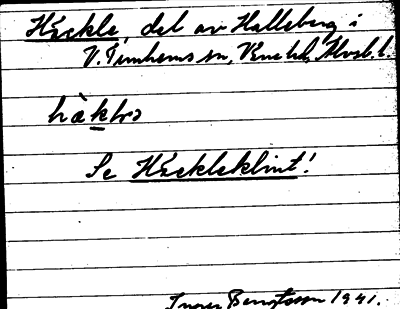 Häckle, del av Halleberg i
V. Tunhems sn, Väne hd, Älvsb. l.
hàklə
Se Häckleklint!
Inger Bengtsson 1941.